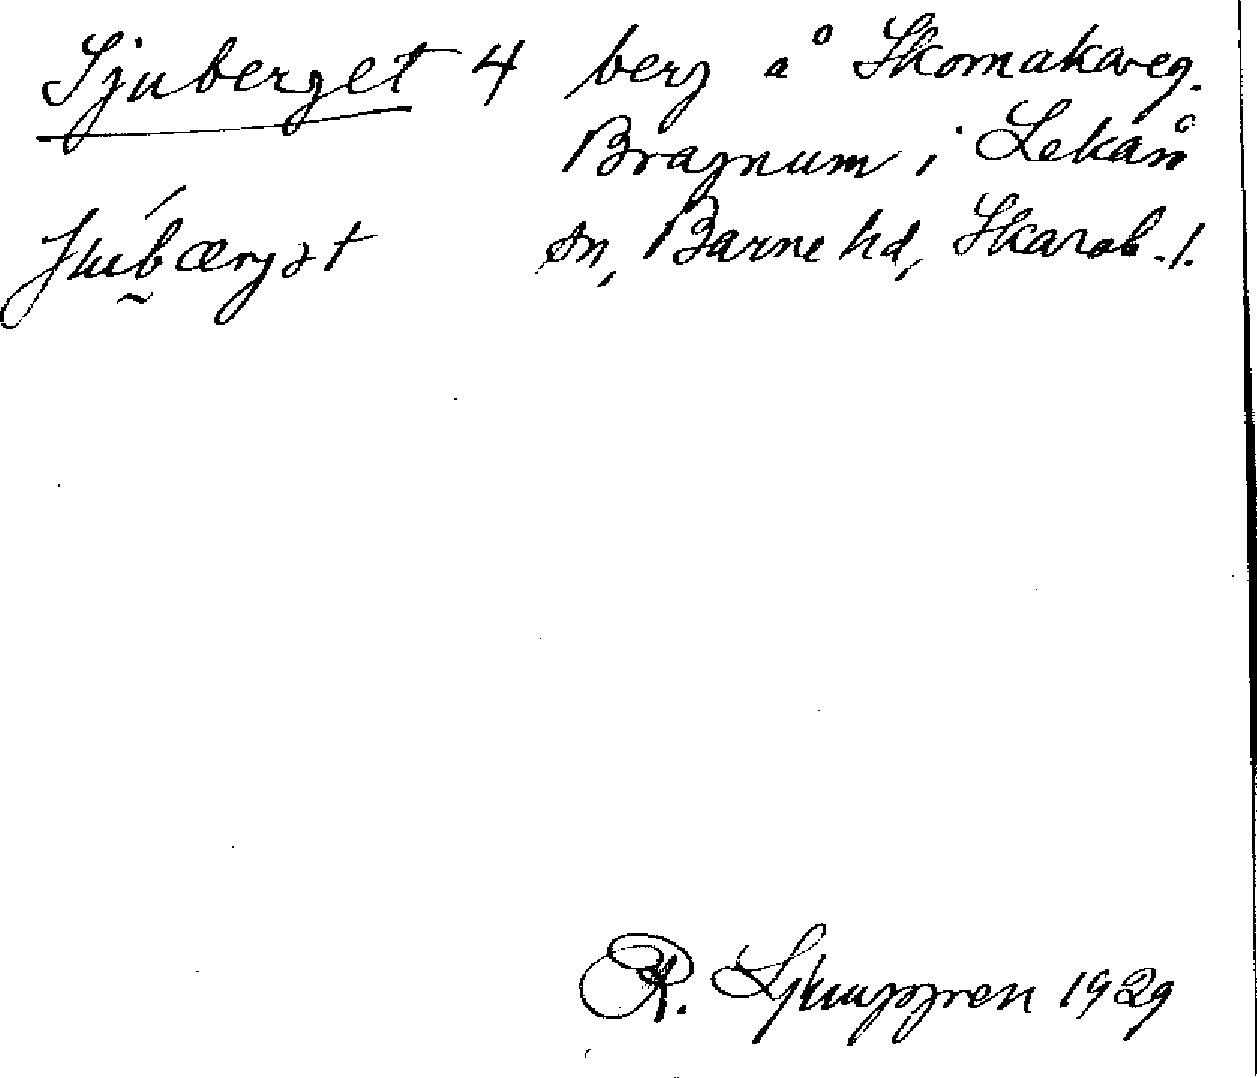 Sjuberget 4 berg å Skomakareg.
Bragnum i Lekås
sn, Barne hd, Skarab. l.
R. Ljunggren 1929